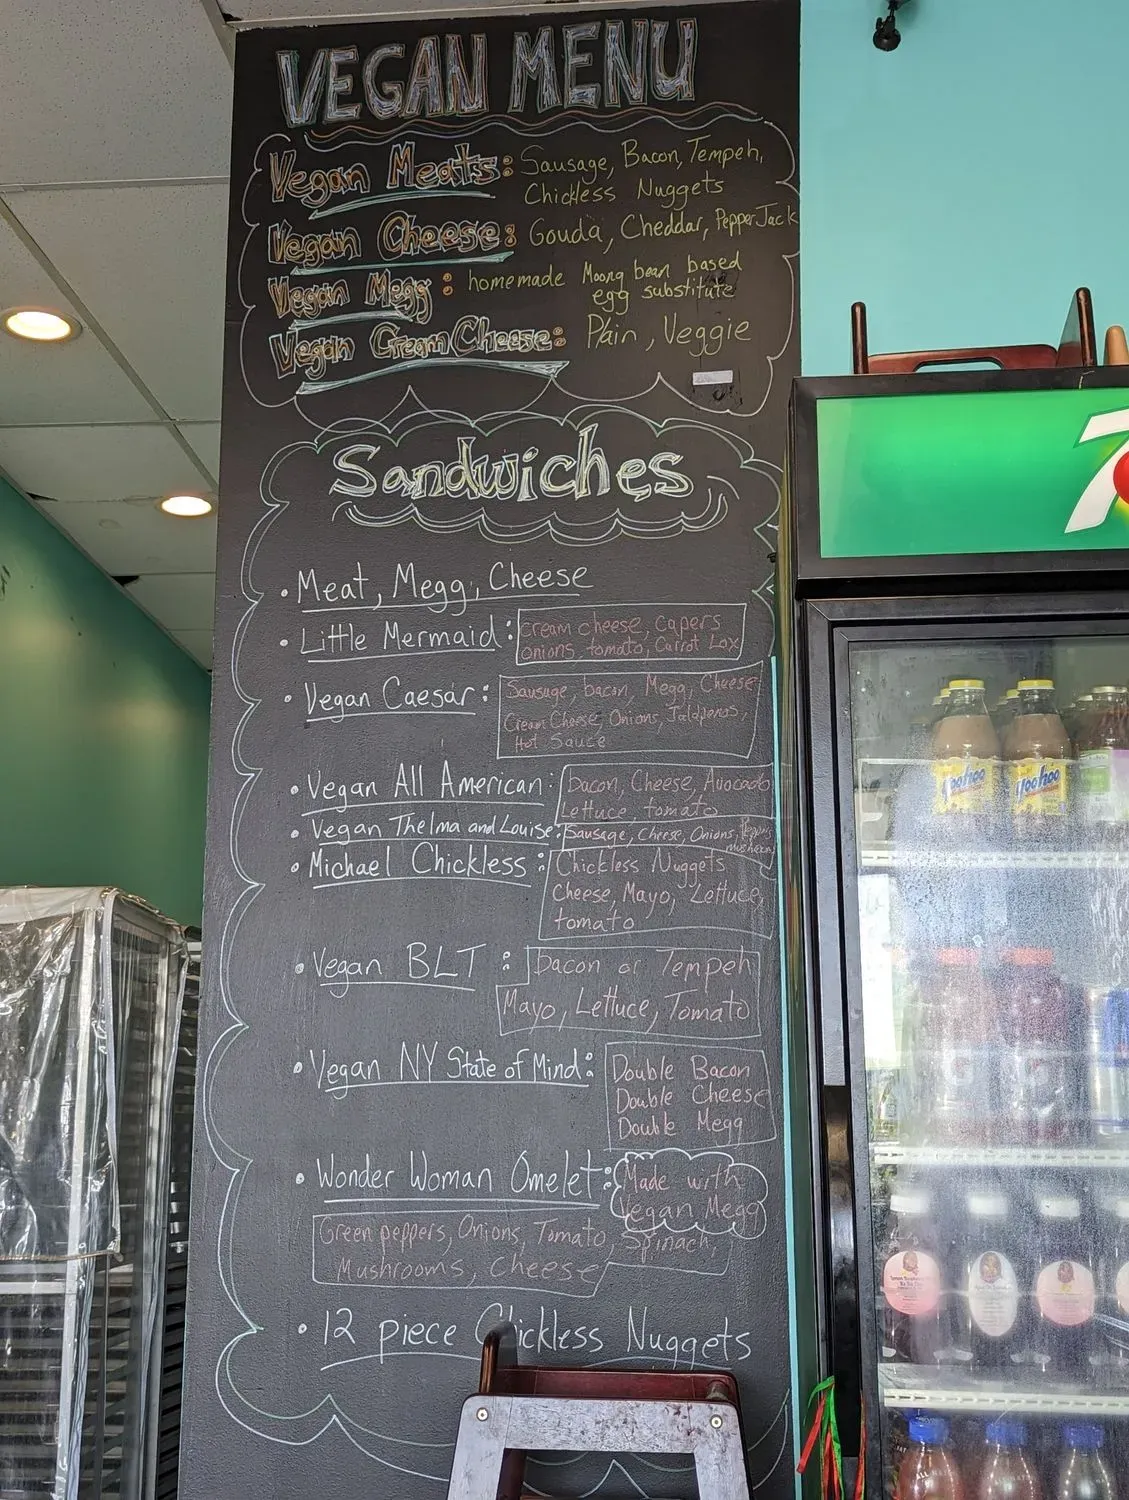 VEGAN MENU
Vegan Meats: Sausage, Bacon, Tempeh,
Chickless Nuggets
Vegan Cheese: Gouda, Cheddar, PepperJack
Vegan Megg: homemade Moong bean based
egg substitute
Vegan Cream Cheese: Plain, Veggie
Sandwiches
• Meat, Megg, Cheese
• Little Mermaid: Cream cheese, capers
onions, tomato, Carrot Lox
• Vegan Caesar: Sausage, bacon, Megg, Cheese
Cream Cheese, Onions, Jalapenos,
Hot Sauce
• Vegan All American: Bacon, Cheese, Avocado
Lettuce, tomato
• Vegan Thelma and Louise: Sausage, Cheese, Onions,
• Michael Chickless: Chickless Nuggets
Cheese, Mayo, Lettuce,
tomato
• Vegan BLT: Bacon or Tempeh
Mayo, Lettuce, Tomato
• Vegan NY State of Mind: Double Bacon
Double Cheese
Double Megg
• Wonder Woman Omelet: Made with
Vegan Megg
Green peppers, Onions, Tomato, Spinach
Mushrooms, Cheese
• 12 piece Chickless Nuggets
7
Yoohoo
Yoohoo
G
G